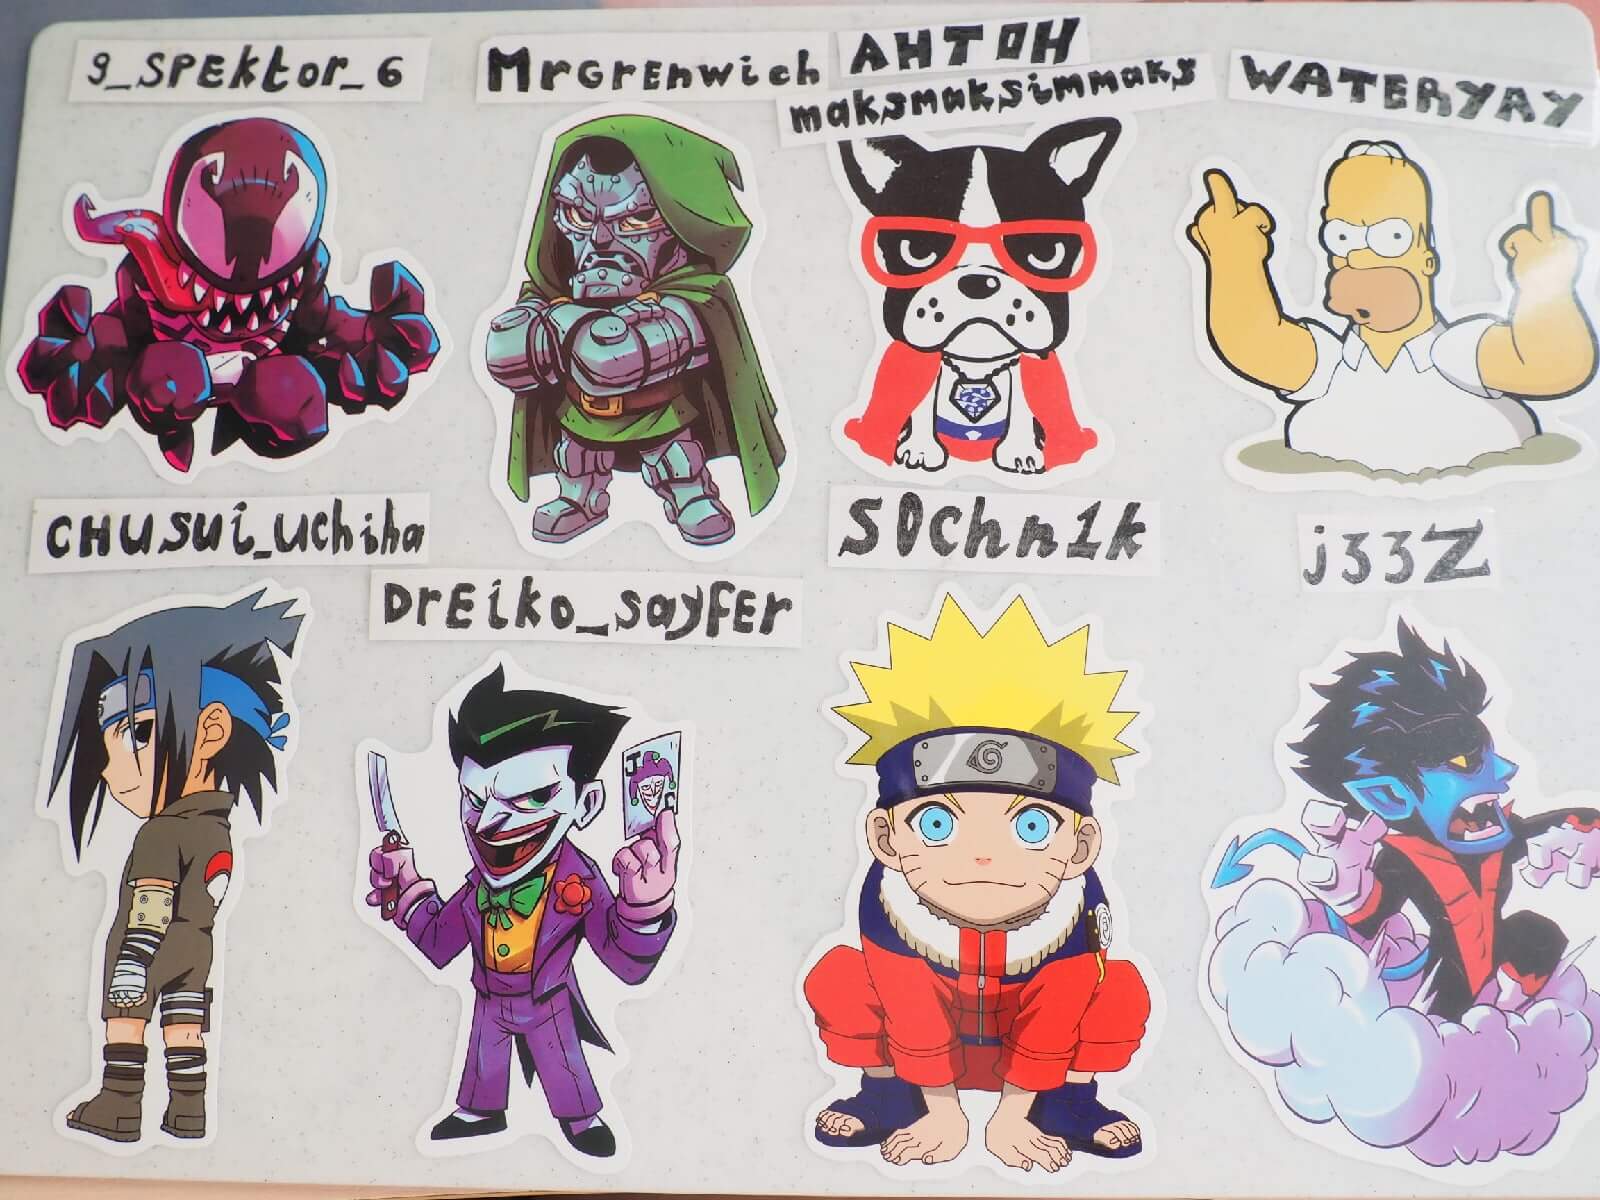 9_SPEktor_6
MrGrEnwich
AHTOH
maksmaksimmaks
WATERYAY
CHUSUi_UChiha
DrEiko_sayFEr
S0Chn1k
j33Z
J